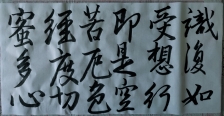 蜜多心
經度切
苦厄色
即是空
受想行
識復如